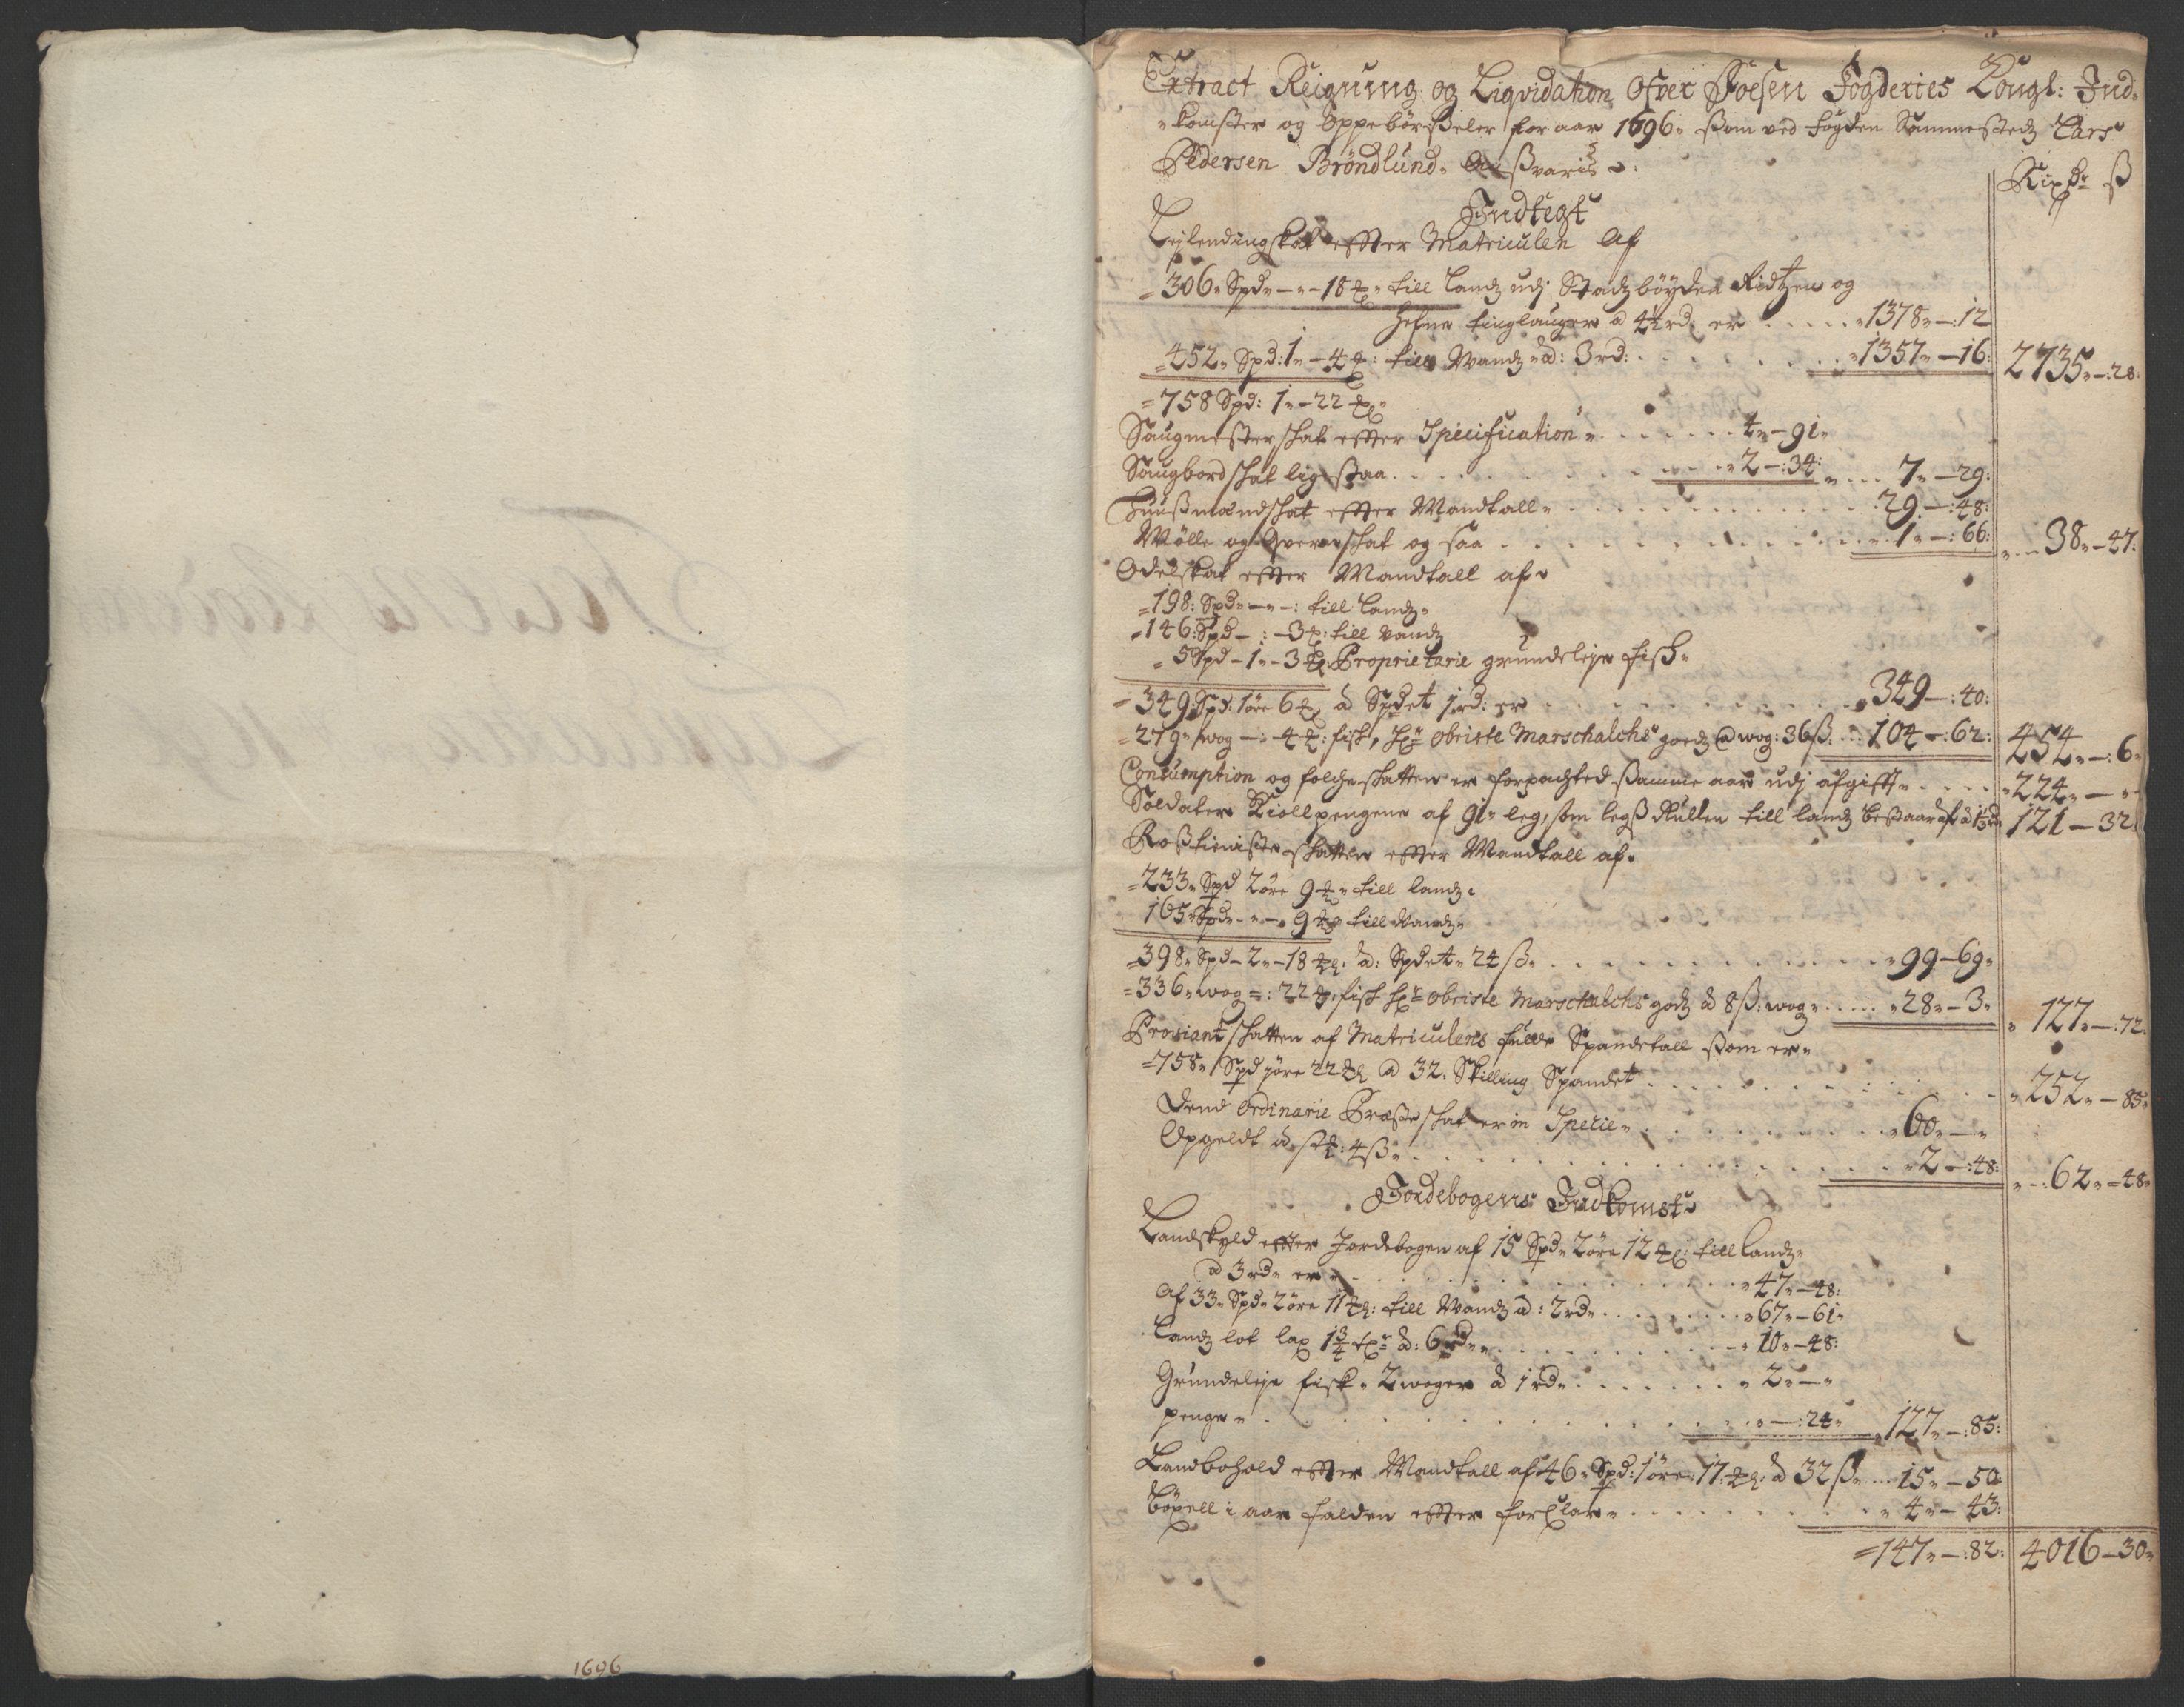 Extract Reigning og Liqvidation Ofver Foesen Fogderies Kongl: Ind-
komster og Oppebörßeler for aar 1696 ßom ved fogden Sammesteds Lars
Pedersen Bröndlund
Rixdr ß
Indtegt
Lejlendingskat effter Matriculen Af
306 Spd - - 18 till Landz udj Stadzböyden Ridtzen og
Hefne tinglauger à 4½ rd: er . . . . 1378 - 12
452 Spd: 1 - 4 till Wandz à: 3 rd: . . . . 1357 - 16: 2735 - 28
758 Spd: 1 - 22
Saugmesterskat effter Specification . . . . 4 - 91
Saugbordskat ligesaa . . . . 2 - 34: 7 - 29:
Huußmandskat effter Mandtall . . . . 29 - 48:
Mölle og Qvernskat og saa . . . . 1 - 66: 38 - 47:
Odelskat effter Mandtall af
198: Spd - - till Landz
146: Spd - : - 3 till Vandz
5 Spd - 1 - 3 Proprietarie grundeleje fisk
349: Spd: 1 öre 6 à Spdet 1 rd: er . . . . 349 - 40:
279 wog - 4 fisk, Hr Obriste Marschalchs godz à wog: 36 ß: 104 - 62: 454 - 6
Consumption og folcheskatten er forpagted ßamme aar udj afgifft . . . . 224 - -
Soldater Kiollpengene af 91 leg, som legß Rullen till landz bestaar af à 1⅓ rd 121 - 32
Roßtienisteskatten effter Mandtall af
233 Spd 2 öre 9 till landz
165 Spd - - 9 till Vandz
398 Spd - 2 - 18 à: Spdet 24 ß . . . . 99 - 69
336 wog : 22 fisk Hr Obriste Marschalchs godz à 8 ß: wog . . . . 28 - 3 127 - 72
Proviantskatten af Matriculens fulde Spandetall ßom er
758 Spd 1 öre 22 à 32 Skilling Spandet . . . . 252 - 85
Dend Ordinarie Præsteskat er in Specie . . . . 60 -
Opgeldt à stk: 4 ß . . . . 2 - 48: 62 - 48
Jordebogens Indkomst
Landskyld effter Jordebogen af 15 Spd 2 öre 12 till Landz
à 3 rd er . . . . 47 - 48:
Af 33 Spd 2 öre 11 till Wandz à: 2 rd . . . . 67 - 61
Landz lot lax 1¾ à: 6 rd . . . . 10 - 48:
Grundeleje fisk 2 woger à 1 rd . . . . 2 -
penge . . . . - : 24 127 - 85:
Landbohold effter Mandtall af 46 Spd: 1 öre: 17 à 32 ß . . . 15 - 50
böxell i aar falden effter forklar . . . . 4 - 43:
147 - 82: 4016 - 30
1696